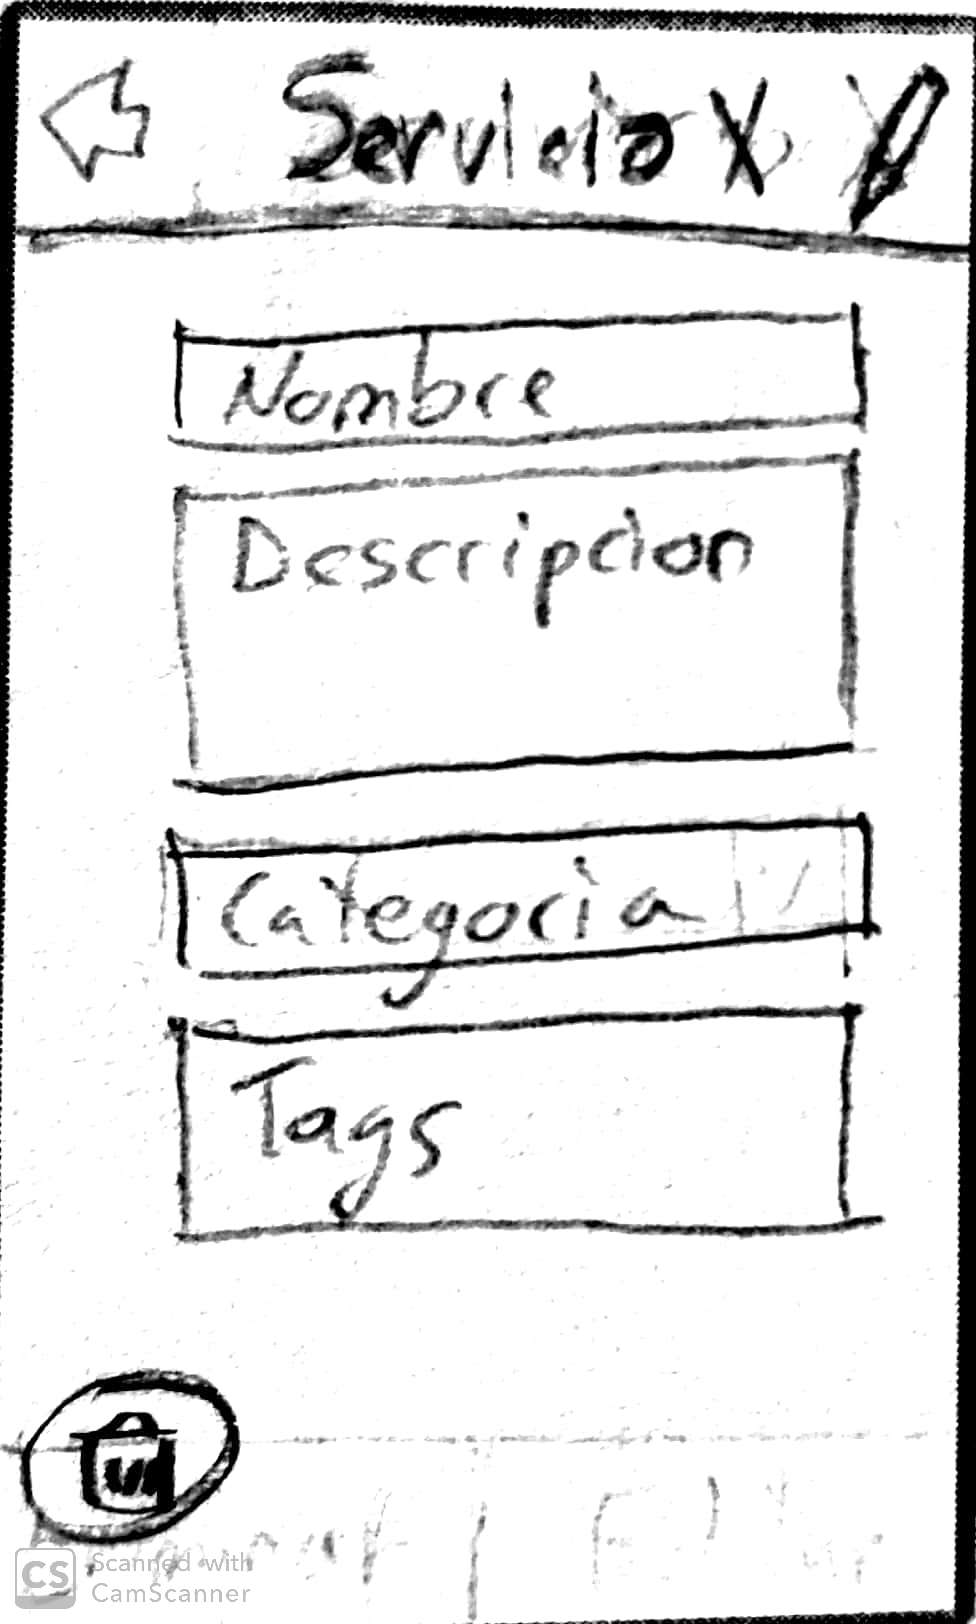 Servicio X
Nombre
Descripcion
Categoria
Tags
CS Scanned with
CamScanner